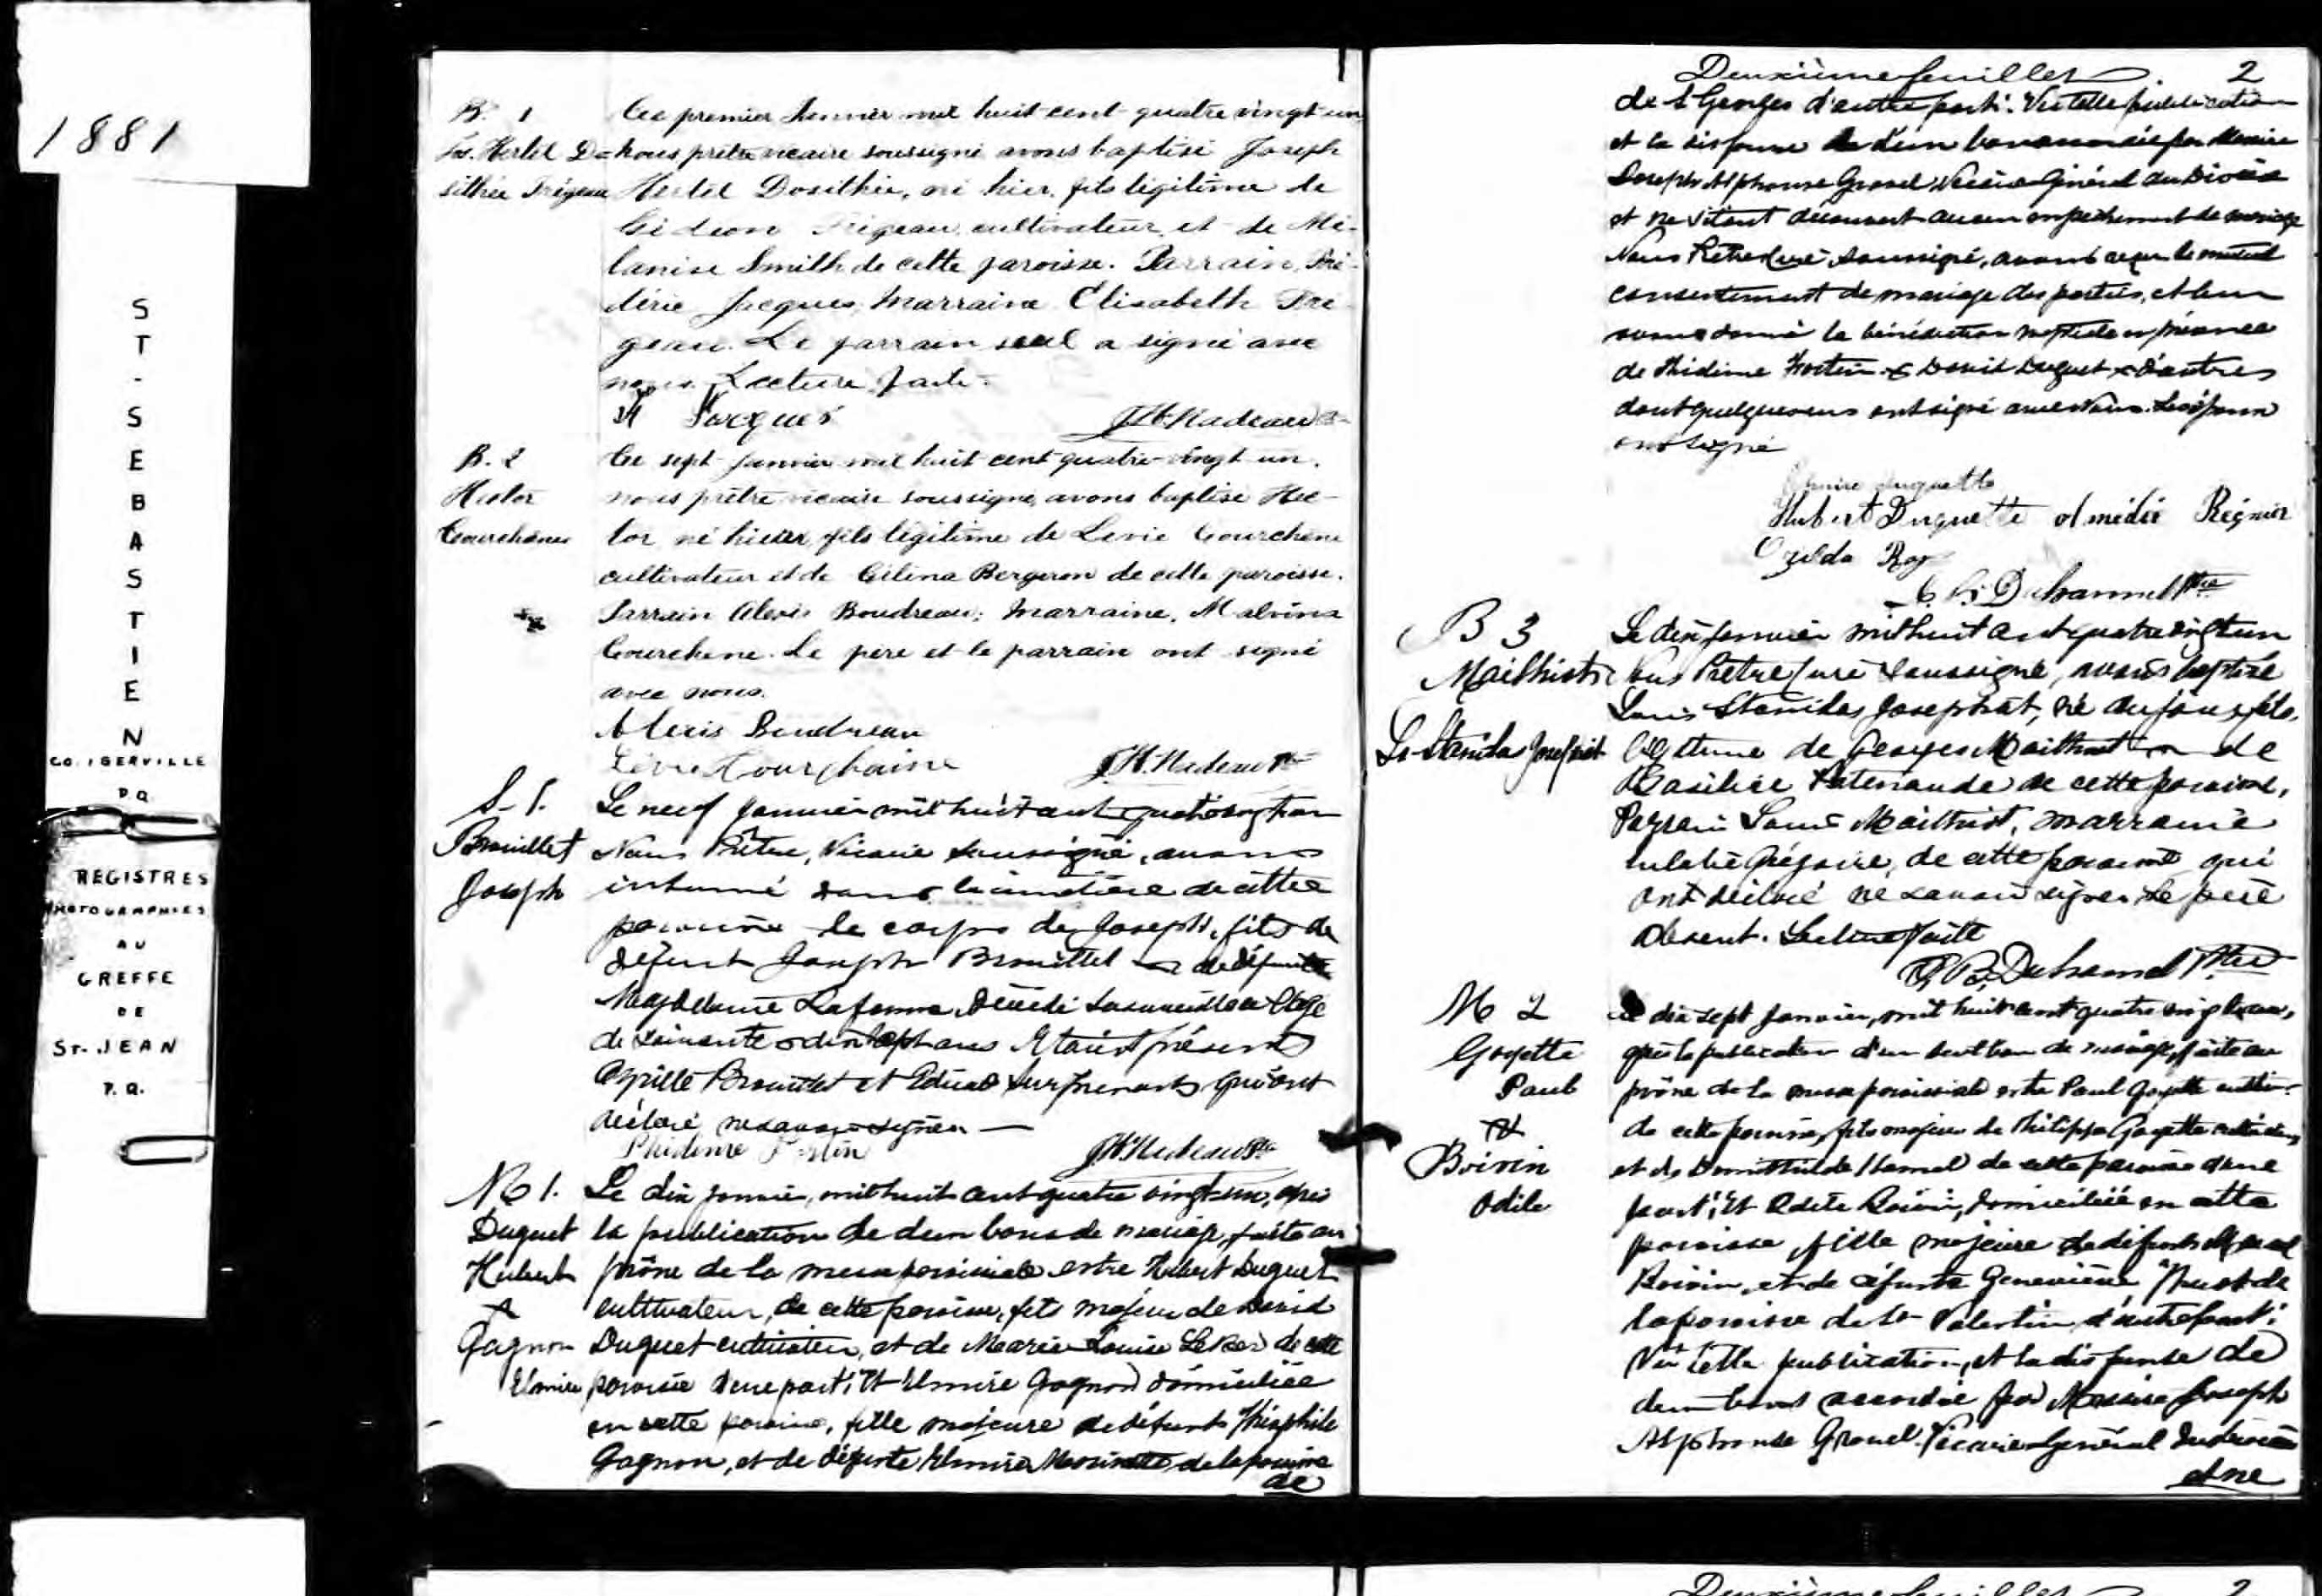 1881
ST-SEBASTIEN
CO. IBERVILLE
P.Q
REGISTRES
PHOTOGRAPHIES
AU
GREFFE
DE
ST. JEAN
P.Q.
B. 1
Jos. Hertel Do-
sithée Trégeau
Ce premier Janvier mil huit cent quatre vingt un
nous prêtre vicaire soussigné avons baptisé Joseph
Hertel Dosithée, né hier, fils légitime de
Gédeon Frégeau, cultivateur, et de Mé-
lanise Smith de cette paroisse. Parrain, Fré-
déric Jacques, Marraine Elisabeth Fré-
geau. Le parrain seul a signé avec
nous. Lecture faite.
Jacques J.H. Nadeau
B. 2
Hector
Courchène
Ce sept Janvier mil huit cent quatre-vingt un.
nous prêtre vicaire soussigné, avons baptisé Hec-
tor, né hier, fils légitime de Levie Courchène
cultivateur et de Célina Bergeron de cette paroisse.
Parrain Alexis Boudreau; Marraine, Malvina
Courchène. Le père et le parrain ont signé
avec nous.
Alexis Boudreau
J.H. Nadeau Ptre
S-1.
Brouillet
Joseph
Le neuf Janvier mil huit cent quatre vingt un
Nous Prêtre, Vicaire soussigné, avons
inhumé dans le cimetière de cette
paroisse le corps de Joseph, fils de
défunt Joseph Brouillet et de défunte
Magdeleine Lafemme, décédé à l'âge
de soixante et dix sept ans Etaient présents
Brouillet et qui ont
déclaré ne savoir signer
J.H. Nadeau Ptre
M 1.
Duquet
Hubert
&
Gagnon
Elmire
Le dix Janvier, mil huit cent quatre vingt un, après
la publication de deux bans de mariage, faite au
prône de la messe paroissiale entre Hubert Duquet
cultivateur, de cette paroisse, fils majeur de David
Duquet cultivateur, et de Marie Louise de cette
paroisse d'une part; Et Elmire Gagnon domiciliée
en cette paroisse, fille majeure de défunt Théophile
Gagnon, et de défunte Elmire de la paroisse
de
Deuxième feuillet. 2
de St Georges d'autre part. Vu telle publication
et la dispense de d'un ban accordée par Messire
Joseph Alphonse Gravel Vicaire Général du Diocèse
et ne s'étant découvert aucun empêchement de mariage
Nous Prêtre Curé soussigné, avons reçu le mutuel
consentement de mariage des parties, et leur
avons donné la bénédiction nuptiale en présence
de & David Duquet & d'autres
dont quelques uns ont signé avec Nous. Les époux
ont signé
Elmire Duquette
Hubert Duquette Amédée Régnier
Ozilda Roy
Duhamel Ptre
B 3
Mailhiot
Ls-Stanislas Josephat
Le dix Janvier mil huit cent quatre vingt un
Nous Prêtre Curé soussigné, avons baptisé
Louis Stanislas Josephat, né aujourd'hui, fils
légitime de Georges Mailhiot et de
Basilice Patenaude de cette paroisse,
Parrain Louis Mailhiot, marraine
Grégoire, de cette paroisse qui
ont déclaré ne savoir signer Le père
absent. Lecture faite
Duhamel Ptre
M 2
Goyette
Paul
&
Boivin
Odile
Le dix sept Janvier, mil huit cent quatre vingt un,
après la publication d'un seul ban de mariage, faite au
prône de la messe paroissiale entre Paul Goyette cultiv.
de cette paroisse, fils majeur de Philippe Goyette cultivateur,
et de Domithilde Hamel de cette paroisse d'une
part; Et Odile Boivin, domiciliée en cette
paroisse, fille majeure de défunt
Boivin, et de défunte Geneviève de
la paroisse de St Valentin, d'autre part;
Vu telle publication, et la dispense de
deux bans accordée par Messire Joseph
Alphonse Gravel Vicaire Général du diocèse
et ne
Deuxième feuillet 2